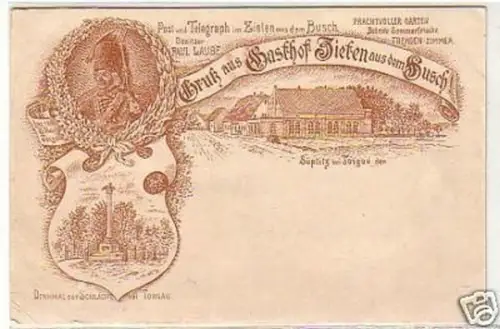 Post und Telegraph im Zieten aus dem Busch.
Besitzer
PAUL LAUBE
PRACHTVOLLER GARTEN
Beliebte Sommerfrische
FREMDEN-ZIMMER.
Gruß aus Gasthof Zieten aus dem Busch!
Süptitz bei Torgau den
DENKMAL DER SCHLACHT BEI TORGAU